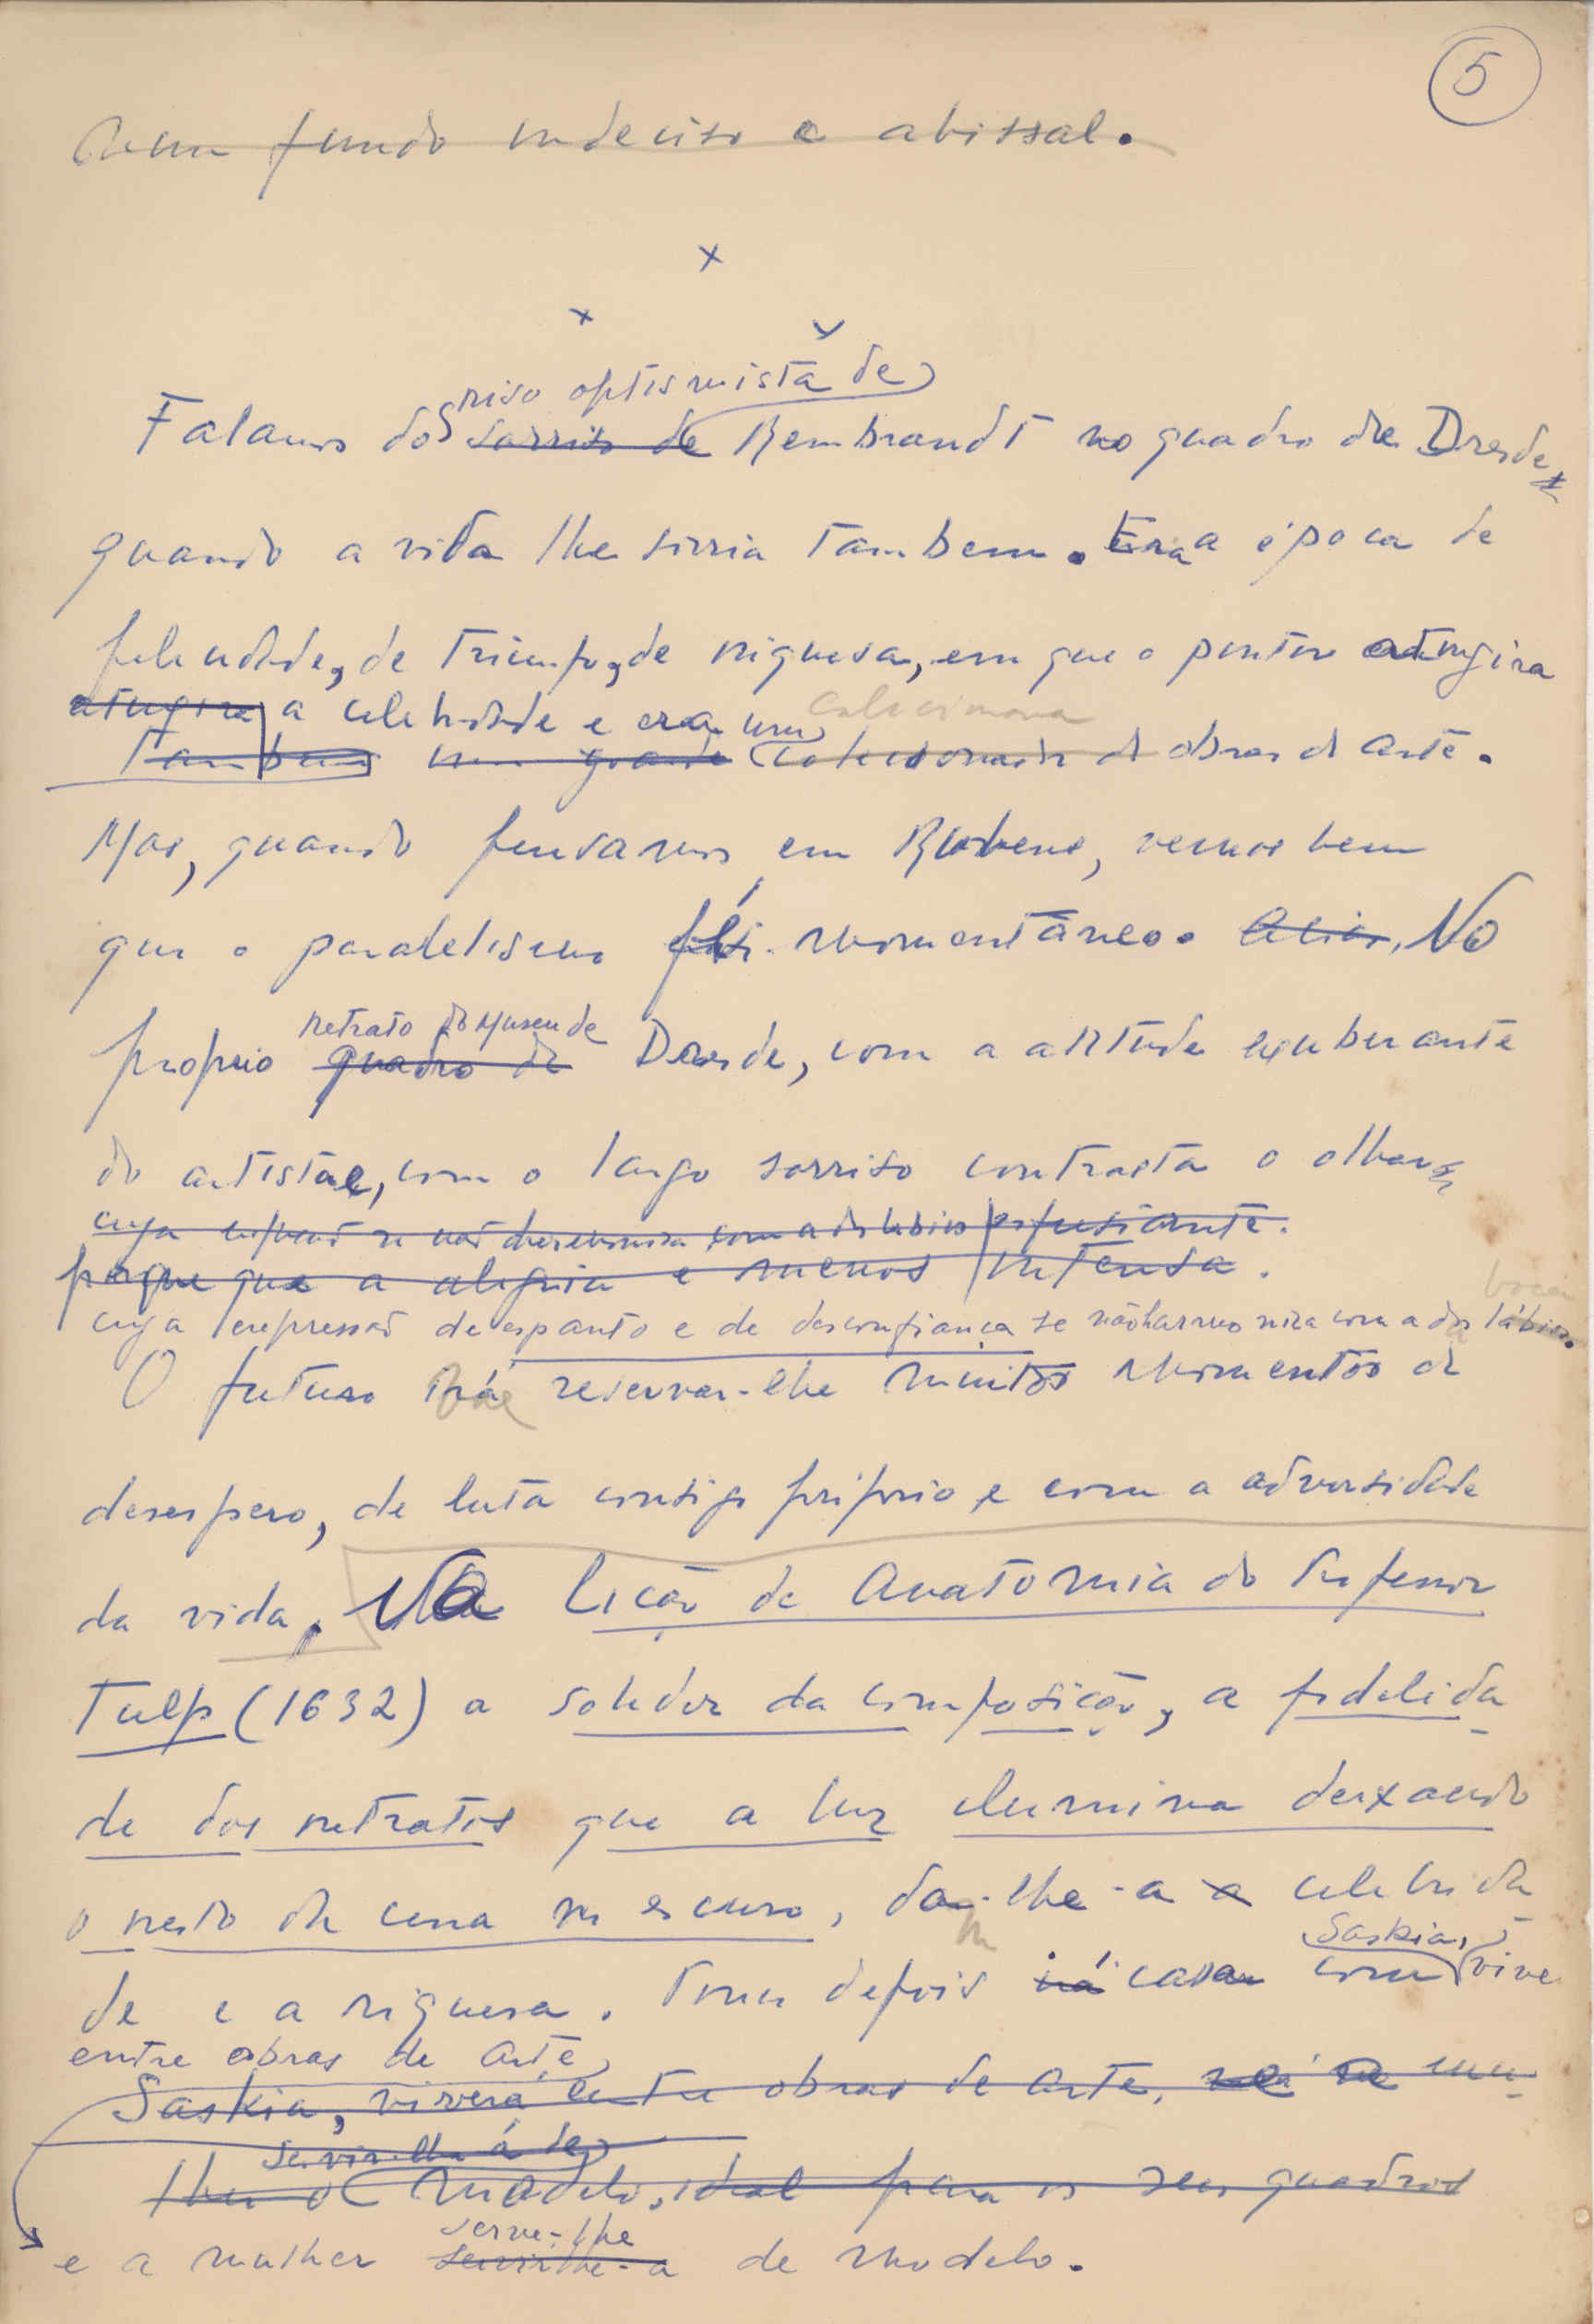 5
fundo indeciso e abissal.
x
x x
riso optimista de
Falamos do sorriso de Rembrandt no quadro de Dresde
quando a vida lhe sorria tambem. Era a época de
felicidade, de triunfo, de riquesa, em que o pintor atingira
atingira a celebridade e era um coleccionava
Tambem um grande colecionador de obras de arte.
Mas, quando pensamos em Rubens, vemos bem
que o paralelismo é momentâneo. Aliás, No
retrato do Museu de
proprio quadro de Dresde, com a atitude exuberante
do artista e, com o largo sorriso contrasta o olhar
cuja expressão se não harmonisa com a dos labios
porque a alegria é menos intensa.
boca
cuja expressão de espanto e de desconfiança se não harmoniza com a dos lábios.
O futuro irá reservar-lhe muitos momentos de
desespero, de luta consigo próprio e com a adversidade
da vida. Na Lição de Anatomia do Professor
Tulp (1632) a solidez da composição, a fidelida
de dos retratos que a luz ilumina deixando
o resto da cena no escuro, dar-lhe-a a celebrida
Saskia,
de e a riquesa. Pouco depois irá casar com vive
entre obras de arte,
Saskia, viverá entre obras de arte, será a mu
servir-lhe á de
lher o modelo ideal para os seus quadros
serve-lhe
e a mulher servir-lhe-a de modelo.